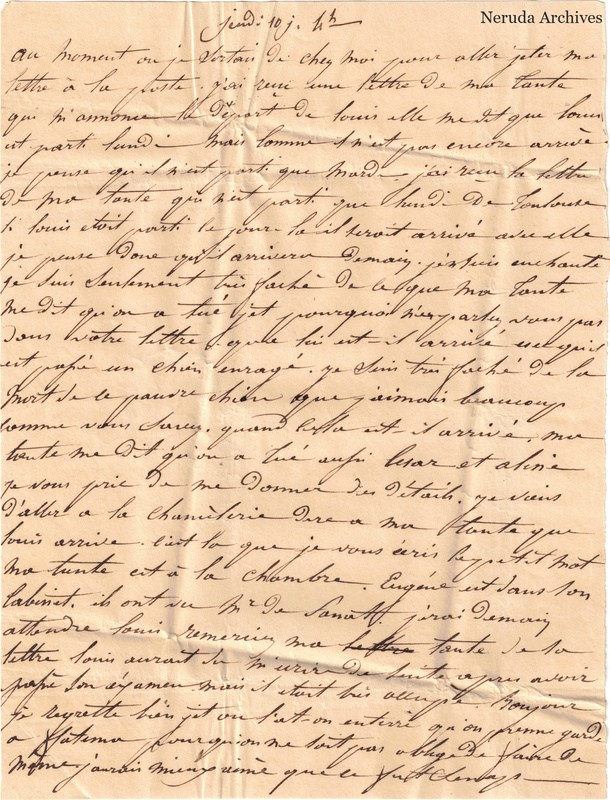 Neruda Archives
Jeudi 10 j. 4h
au moment ou je sortais de chez moi pour aller jeter ma
lettre à la poste. j'ai recu une lettre de ma tante
qui m'annonce le départ de louis elle me dit que louis
est parti lundi mais comme il n'est pas encore arrivé
je pense qu'il n'est parti que mardi j'ai recu la lettre
de ma tante qui n'est parti que lundi de Toulouse
si louis etoit parti ce jour la il seroit arrivé avec elle
je pense donc qu'il arrivera demain. je suis enchanté
je suis seulement très faché de ce que ma tante
me dit qu'on a tué jet pourquoi n'en parlez vous pas
dans votre lettre. que lui est-il arrivé
est passé un chien enragé. je suis très faché de la
mort de ce pauvre chien que j'aimais beaucoup
comme vous savez. quand cela est-il arrivé. ma
tante me dit qu'on a tué aussi Cesar et aline
je vous prie de me donner des détails. je viens
d'aller a la chancélerie dire a ma tante que
louis arrive. c'est la que je vous écris ce petit mot
ma tante est à la chambre. Eugéne est dans son
cabinet. ils ont vu Mr de j'irai demain
attendre louis remerciez ma tante de la
lettre louis aurait du m'ecrir de suite apres avoir
passé son éxamen mais il etait très occupé. Bonjour
je regrette bien jet ou l'at on enterré qu'on prenne garde
a fatema pourquoi on ne soit pas obligé de faire de
même. j'aurais mieux aimé que ce fut